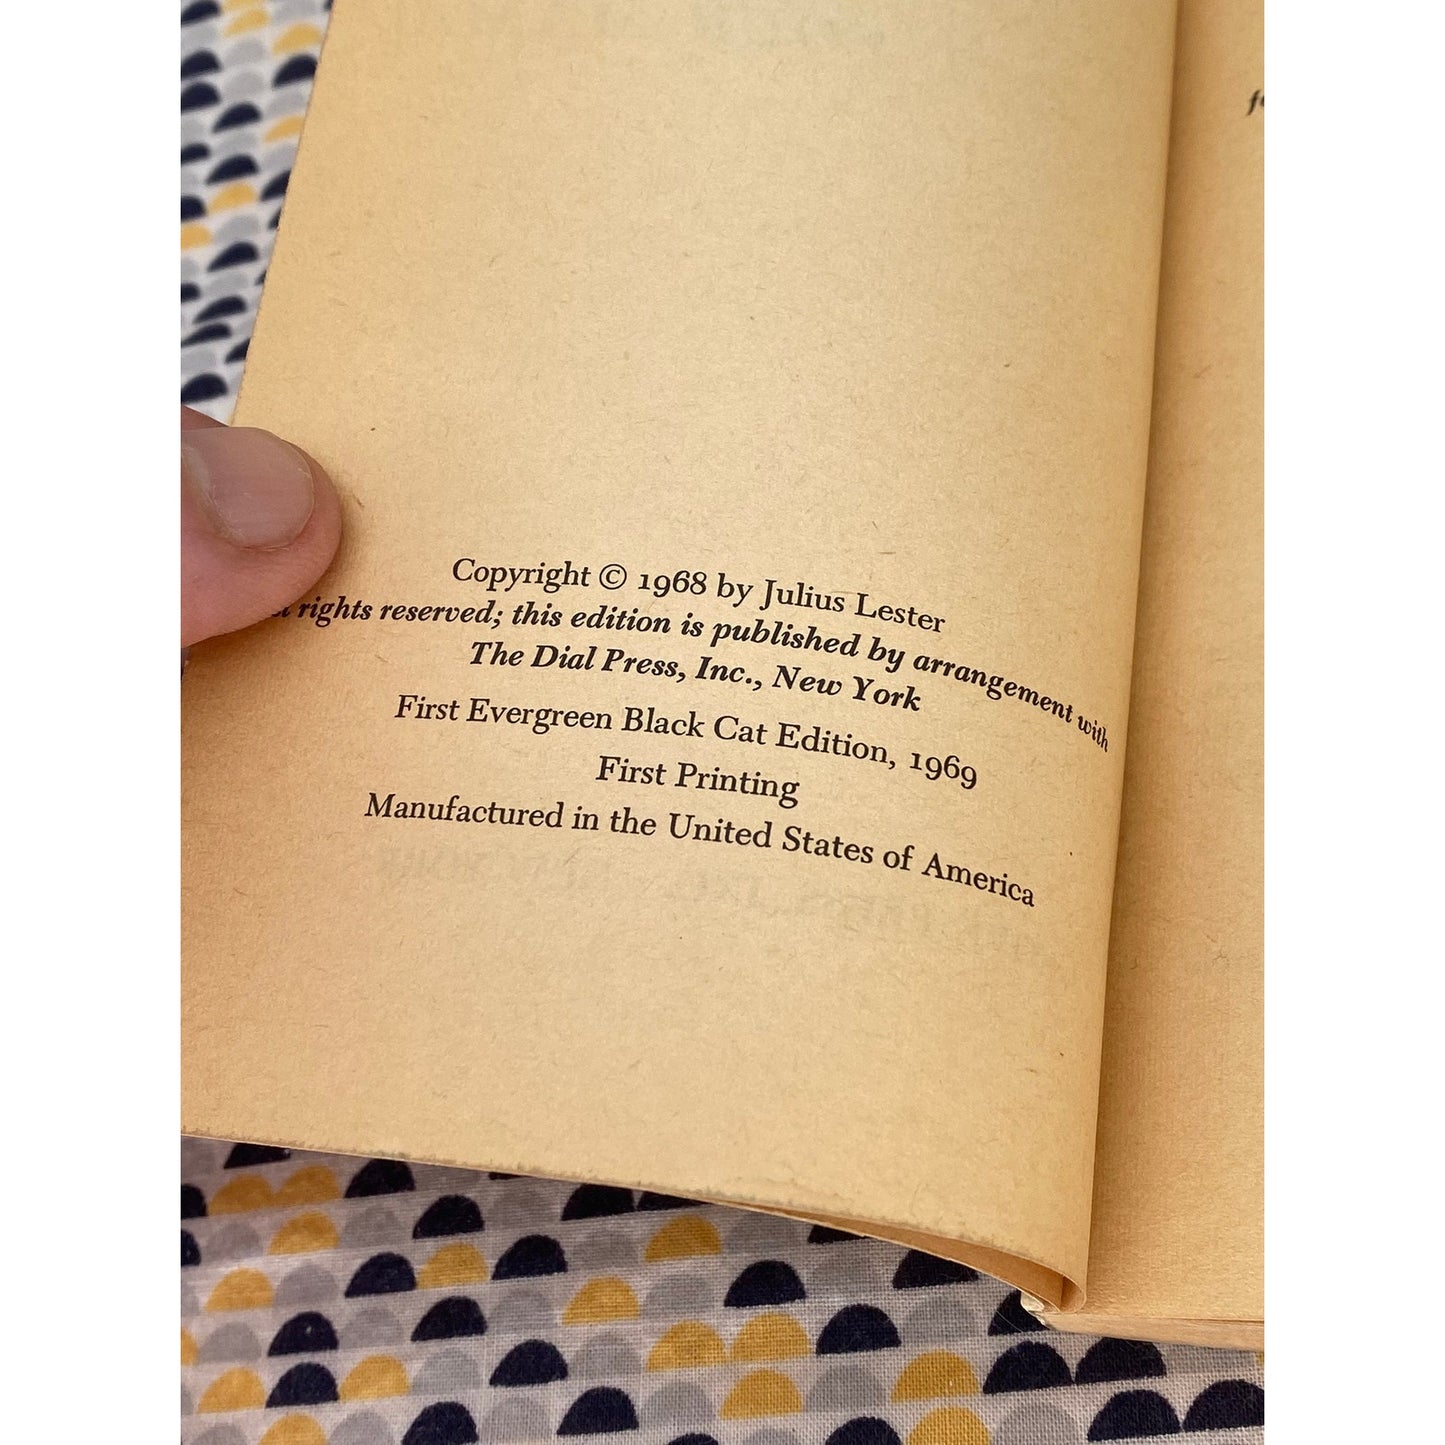 Copyright © 1968 by Julius Lester
rights reserved; this edition is published by arrangement with
The Dial Press, Inc., New York
First Evergreen Black Cat Edition, 1969
First Printing
Manufactured in the United States of America